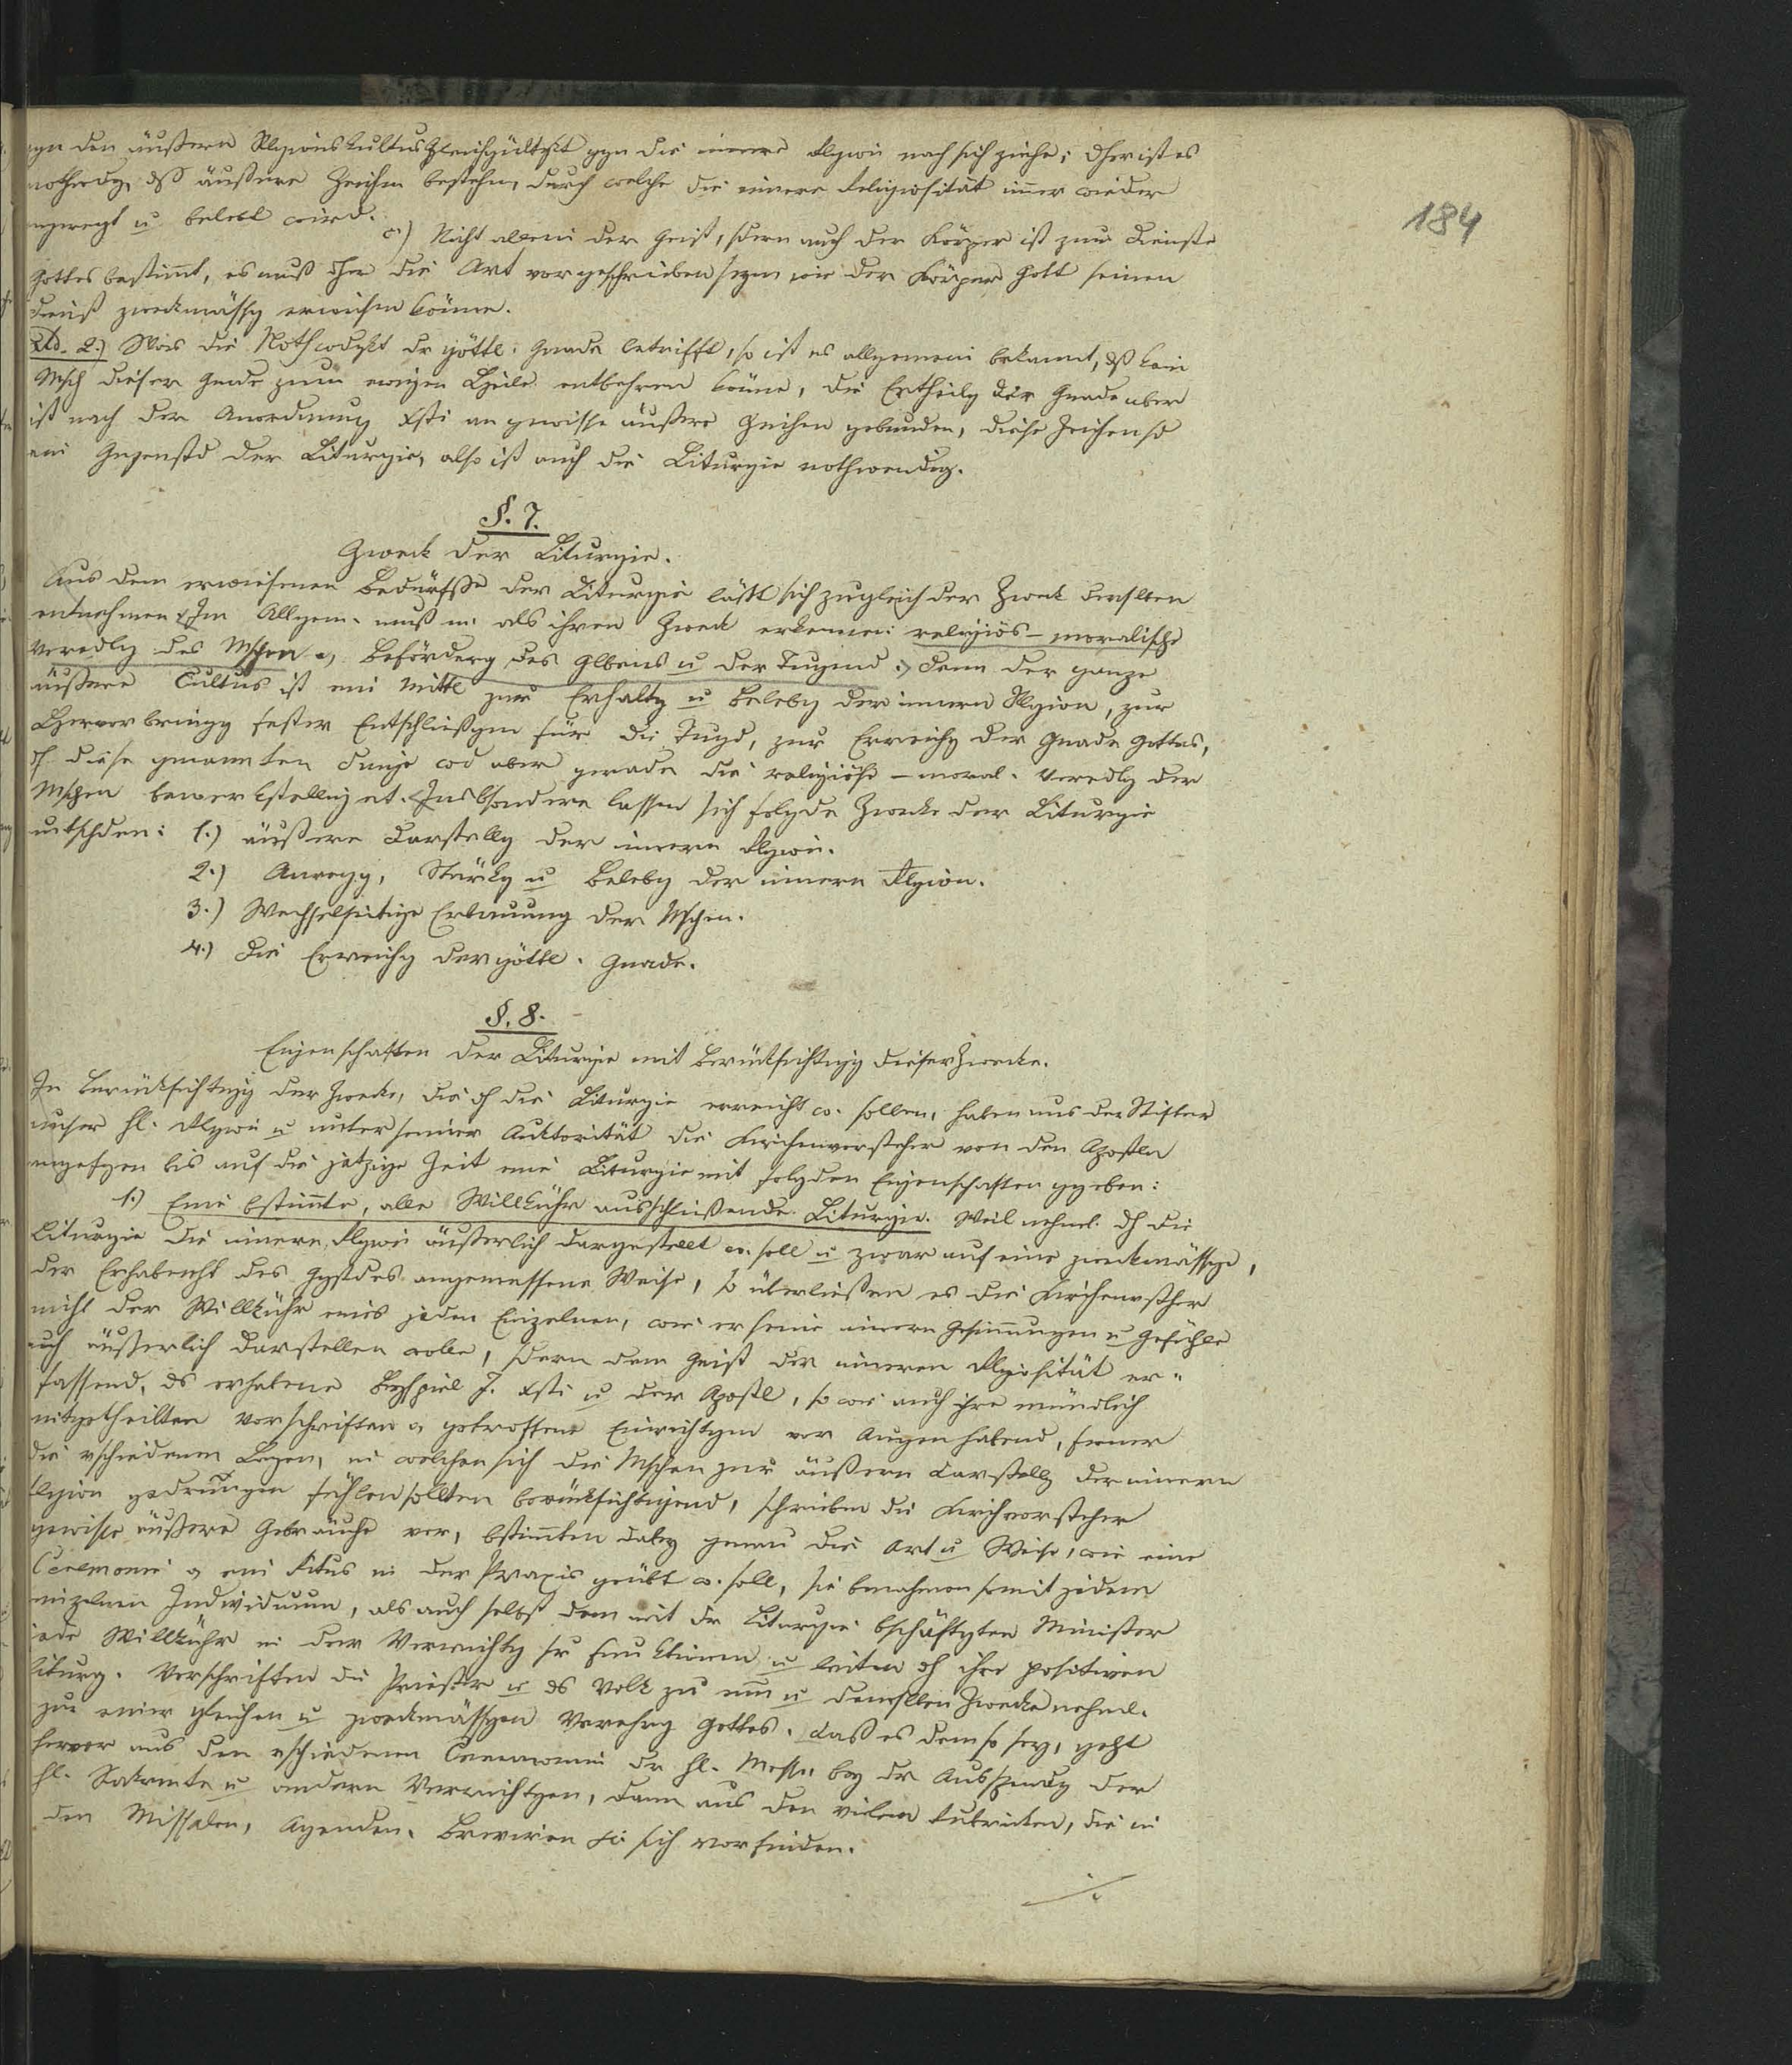 gn den äußern Rlgionskultus Gleichgültgkt ggn die innere Rlgion nach sich ziehe; dher ist es
nothwdg, dß äußere Zeichen bestehn, durch welche die innere Religiosität immer wieder
angeregt u belebt wird.
184
c.) Nicht allein der Geist, sdern auch der Körper ist zum Dienste
Gottes bestimmt, es muß dher die Art vorgeschrieben seyn wie der Körper Gott seinen
Dienst zweckmässg erweisen könne.
Ad. 2.) Was die Nothwdgkt dr göttl. Gnade betrifft, so ist es allgemein bekannt, dß kein
Msch dieser Gnade zum ewigen Heile entbehren könne, die Ertheilg der Gnade aber
ist nach der Anordnung Xsti an gewisse äußere Zeichen gebunden, diese Zeichen sd
ein Gegenstd der Liturgie, also ist auch die Liturgie nothwendig.
§. 7.
Zweck der Liturgie.
Aus dem erwiesenen Bedürfsse der Liturgie läßt sich zugleich der Zweck derslben
entnehmen. Im Allgem. muß m. als ihren Zweck erkennen: religiös-moralische
Veredlg des Mschen o, Beförderg des Glbens u der Tugend. Denn der ganze
äußere Cultus ist ein Mittl zur Erhaltg u Belebg der innern Rlgion, zur
Hervorbringg fester Entschließgen für die Tugd, zur Erreichg der Gnade Gottes,
dh diese genannten Dinge wd aber gerade die religiöse-moral. Veredlg der
Mschen bewerkstelliget. Insbsondere lassen sich folgde Zwecke der Liturgie
untschden: 1.) äußere Darstellg der innern Rlgion.
2.) Anregg, Stärkg u Belebg der innern Rlgion.
3.) Wechselseitige Erbauung der Mschen.
4.) Die Erreichg der göttl. Gnade.
§. 8.
Eigenschaften der Liturgie mit Berücksichtigg dieser Zwecke.
In Berücksichtigg der Zwecke, die dh die Liturgie erreicht w. sollen, haben uns der Stifter
unser hl. Rlgion u unter seiner Auktorität die Kirchenvorsteher von den Aposteln
angefgen bis auf die jetzige Zeit eine Liturgie mit folgden Eigenschaften ggeben:
1.) Eine bstimmte, alle Willkühr ausschließende Liturgie. Weil nehml. dh die
Liturgie die innere Rlgion äußerlich dargestellt w. soll u zwar auf eine zweckmässge,
der Erhabenht des Ggstdes angemessene Weise, so überließen es die Kirchenvsther
nicht der Willkühr eines jeden Einzelnen, wie er seine innern Gesinnungen u Gefühle
auch äußerlich darstellen wolle, sdern dem Geist der inneren Rlgiosität er-
fassend, ds erhabene Beyspiel J. Xsti u der Apostl, so wie auch ihre mündlich
mitgetheilten Vorschriften o getroffene Einrichtgen vor Augen habend, ferner
die vschiedenen Lagen, in welchen sich die Mschen zur äußern Darstellg der innern
Rlgion gedrungen fühlen sollten berücksichtigend, schrieben die Kirchvorsteher
gewisse äußere Gebräuche vor, bstimmten dabey genau die Art u Weise, wie eine
Ceremonie o ein Ritus in der Praxis geübt w. soll, sie benahmen somit jedem
einzelnen Individuum, als auch selbst dem mit dr Liturgie bschäftgten Minister
jede Willkühr in der Verrichtg sr Funktionen u leiten dh ihre positiven
liturg. Vorschriften die Priester u ds Volk zu einn u demsllen Zwecke nehml.
zur einer gleichen u zweckmässgen Verehrg Gottes. Daß es dem so sey, geht
hervor aus den vschiedenen Ceremonien dr hl. Messe, bey dr Ausspendg der
hl. Sakrmte u andern Verrichtgen, dann aus den vielen Rubriken, die in
den Missalen, Agenden, Brevieren etc sich vorfinden.
./.